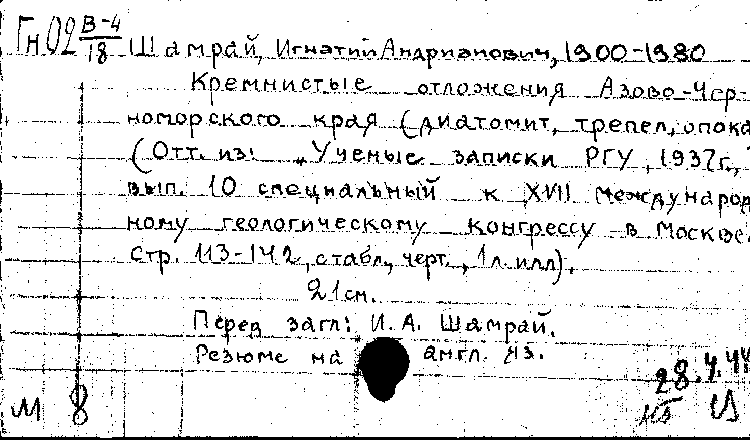 Гн02 В-4/18 Шамрай, Игнатий Андрианович, 1900-1980
Кремнистые отложения Азово-Чер-
номорского края (диатомит, трепел, опока
(Отт. из: "Ученые записки РГУ, 1937г.,
вып. 10 специальный к XVII международ
ному геологическому конгрессу в Москве.
стр. 113-142, с табл., черт., 1 л. илл).
21 см.
Перед загл: И. А. Шамрай.
Резюме на англ. яз.
28.4.44
м 8